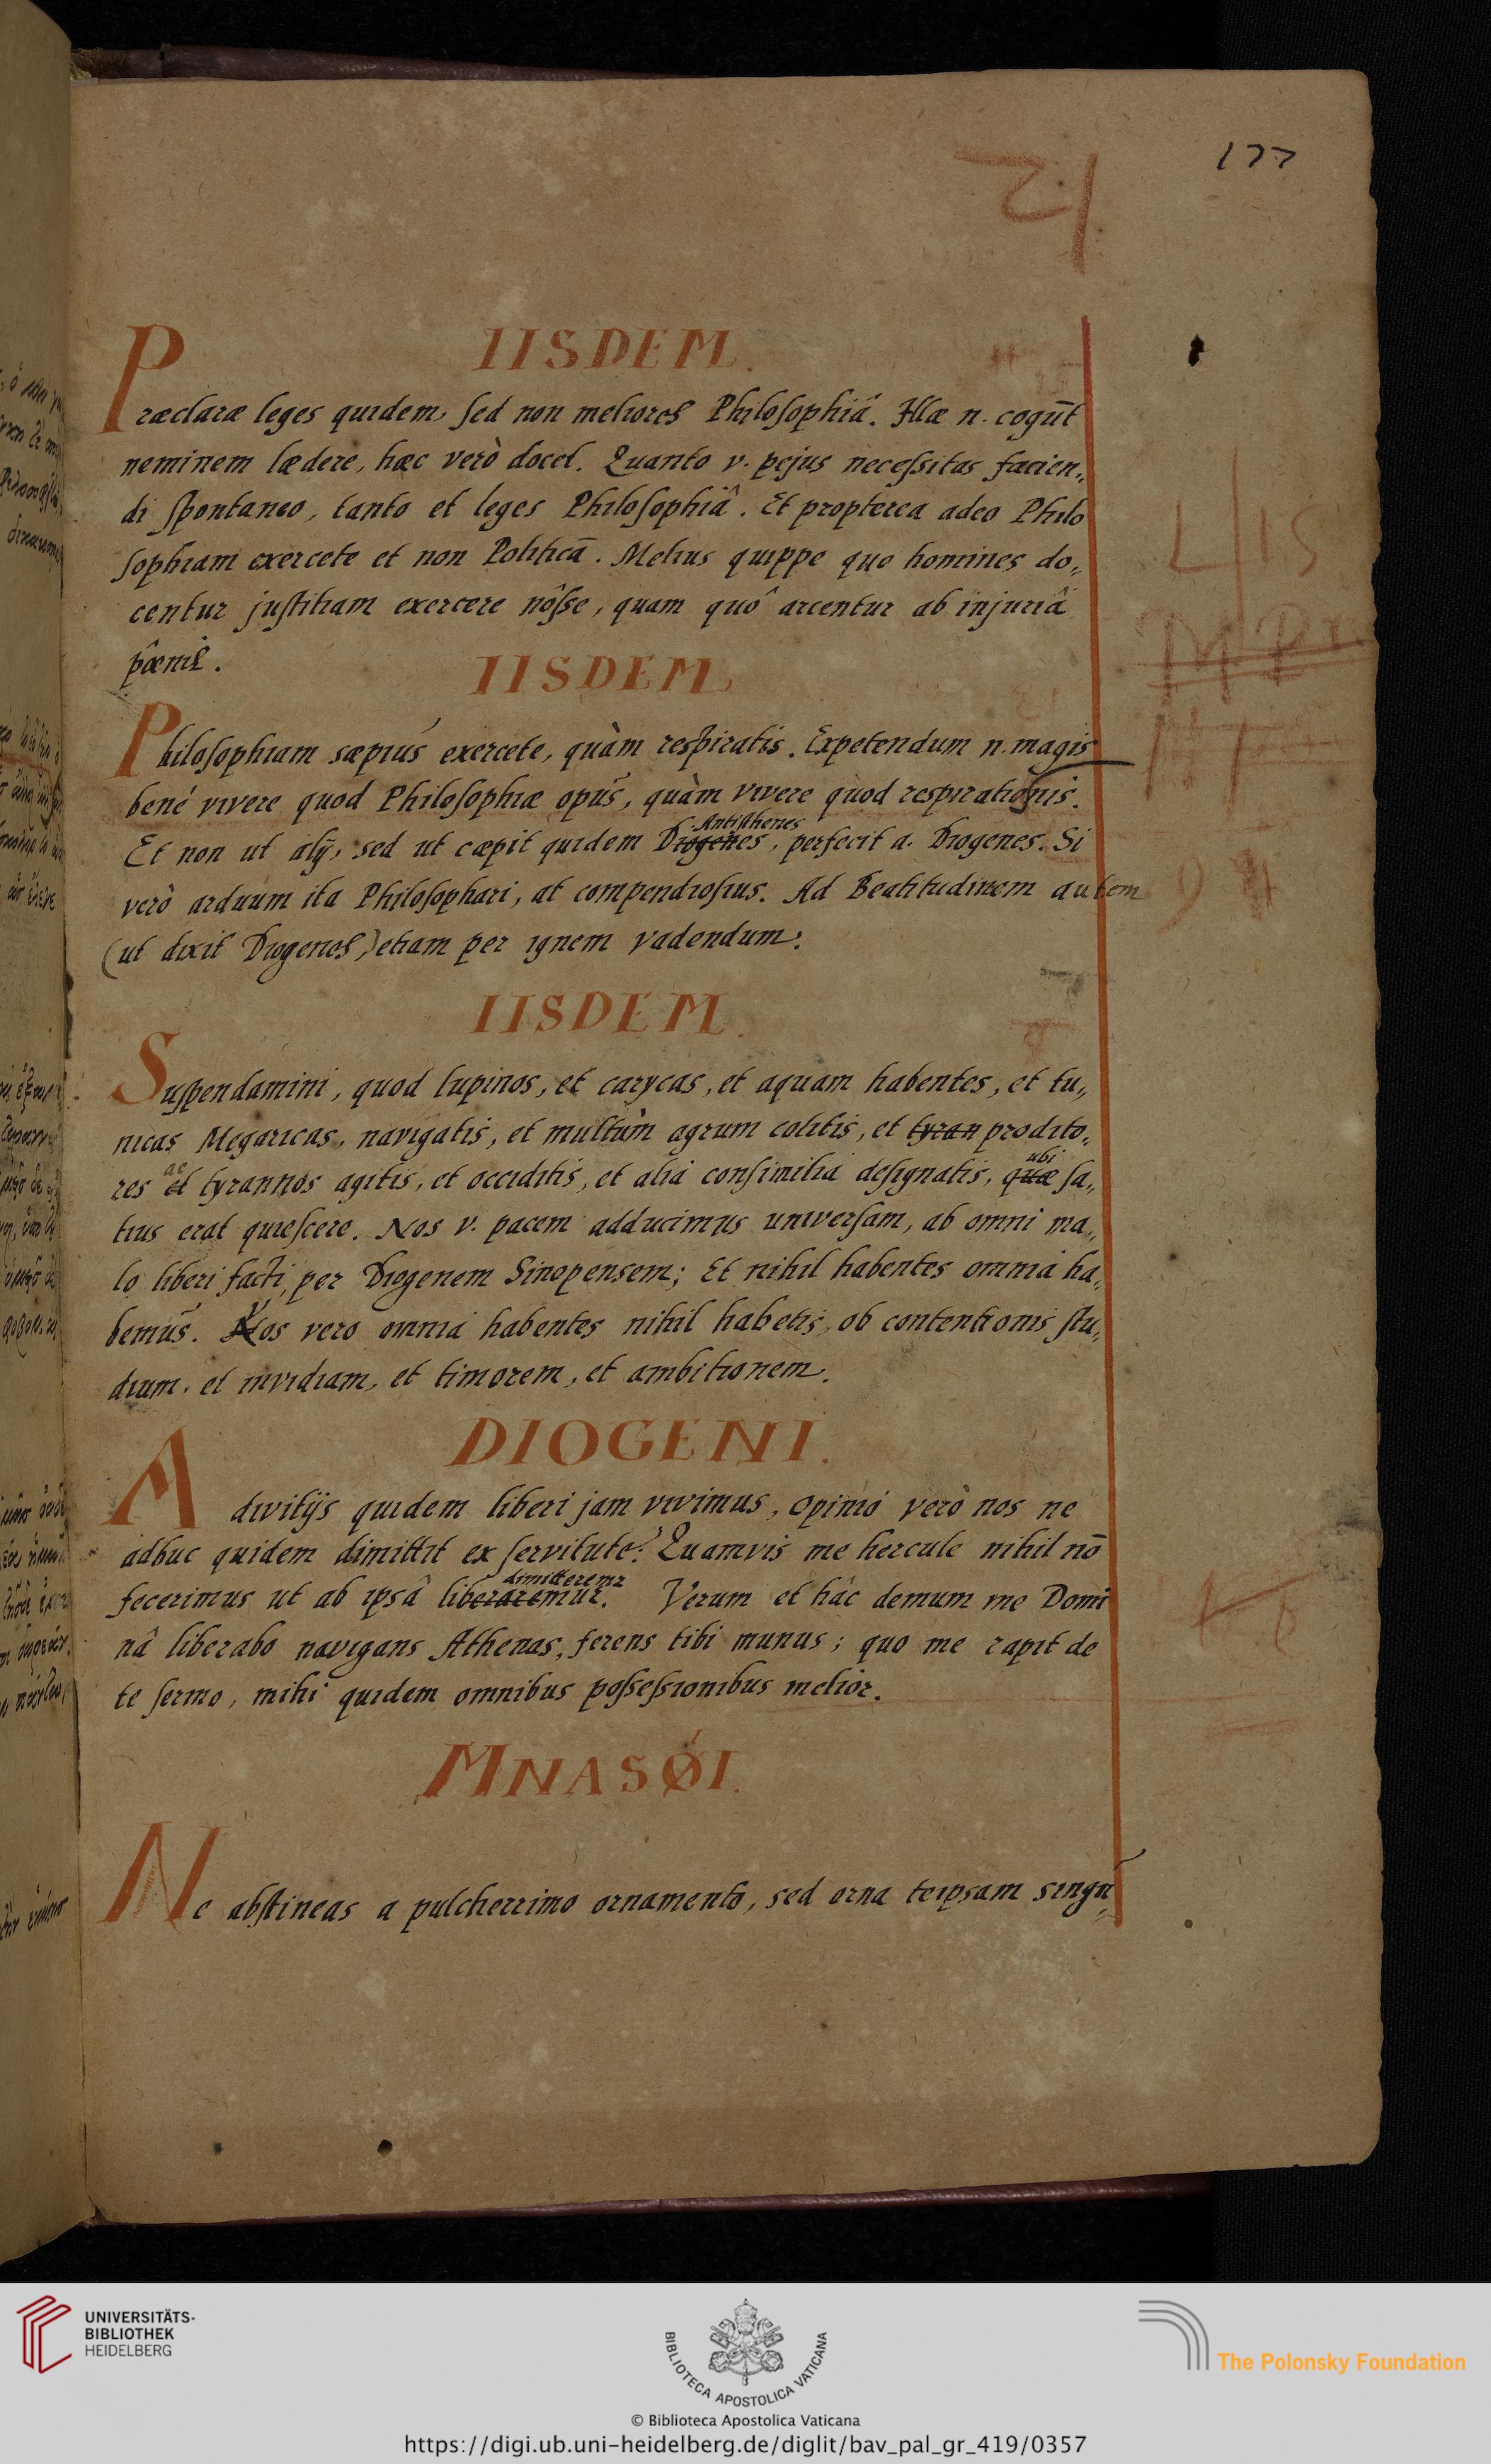 177
IISDEM.
Præclaræ leges quidem, sed non meliores Philosophiâ. Illæ n. cogūt
neminem lædere, hæc verò docet. Quanto v. pejus necessitas facien„
di spontaneo, tanto et leges Philosophiâ. Et propterea adeo Philo
sophiam exercete et non Politicā. Melius quippe quo homines do„
centur justitiam exercere nôsse, quam quô arcentur ab injuriâ
pœnis.
IISDEM.
Philosophiam sæpius exercete, quàm respiratis. Expetendum n. magis
bené vivere quod Philosophiæ opus, quàm vivere quod respirationis.
Antisthenes
Et non ut alij, sed ut cœpit quidem Diogenes, perfecit a. Diogenes. Si
verò arduum ita Philosophari, at compendiosius. Ad Beatitudinem autem
(ut dixit Diogenes,) etiam per ignem vadendum.
IISDEM.
Suspendamini, quod lupinos, et carycas, et aquam habentes, et tu„
nicas Megaricas, navigatis, et multùm agrum colitis, et tyran prodito„
ac ubi
res et tyrannos agitis, et occiditis, et alia consimilia designatis, quæ sa„
tius erat quiescere. Nos v. pacem adducimus universam, ab omni ma„
lo liberi facti, per Diogenem Sinopensem; Et nihil habentes omnia ha„
bemus. Vos vero omnia habentes nihil habetis, ob contentionis stu„
dium, et invidiam, et timorem, et ambitionem.
DIOGENI.
A divitijs quidem liberi jam vivimus, opinió verò nos ne
adhuc quidem dimittit ex servitute? Quamvis me hercule nihil nō
dimitteremr
fecerimus ut ab ipsâ liberaremur. Verum et hâc demum me Domi
nâ liberabo navigans Athenas, ferens tibi munus; quo me rapit de
te sermo, mihi quidem omnibus possessionibus melior.
MNASØI.
Ne abstineas a pulcherrimo ornamento, sed orna teipsam singu„
UNIVERSITÄTS-
BIBLIOTHEK
HEIDELBERG
BIBLIOTECA APOSTOLICA VATICANA
The Polonsky Foundation
© Biblioteca Apostolica Vaticana
https://digi.ub.uni-heidelberg.de/diglit/bav_pal_gr_419/0357